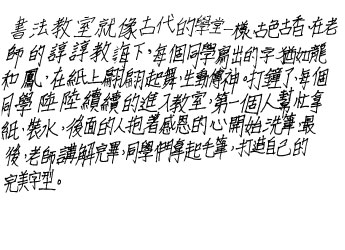 書法教室就像古代的學堂一樣,古色古香,在老
師的諄諄教誨下,每個同學寫出的字猶如龍
和鳳,在紙上翩翩起舞,生動傳神。打鐘了,每個
同學陸陸續續的進入教室,第一個人幫忙拿
紙,裝水,後面的人抱著感恩的心開始洗筆,最
後,老師講解完畢,同學們拿起毛筆,打造自己的
完美字型。